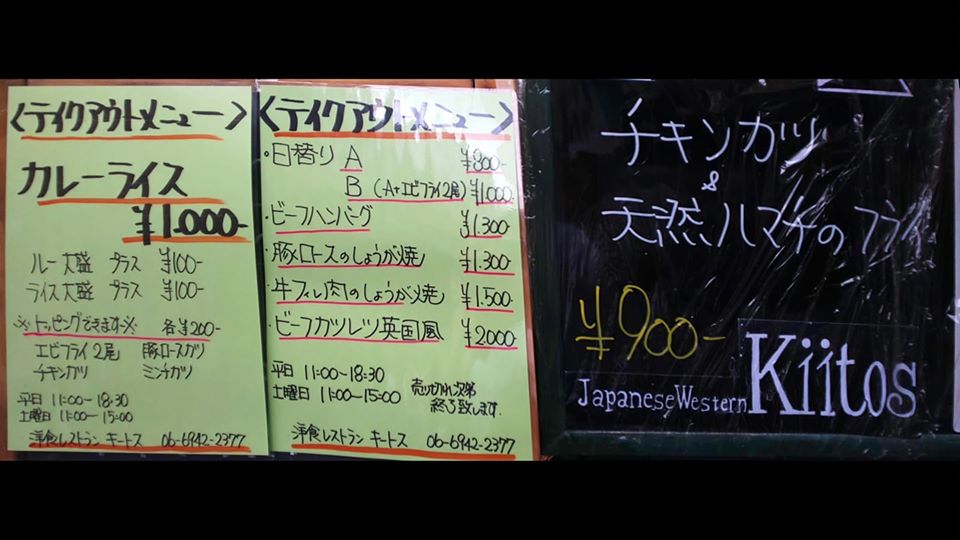 〈テイクアウトメニュー〉
カレーライス
¥1.000-
ルー大盛 プラス ¥100-
ライス大盛 プラス ¥100-
※トッピングできます※ 各¥200-
エビフライ2尾 豚ロースカツ
チキンカツ ミンチカツ
平日 11:00~18:30
土曜日 11:00~15:00
洋食レストラン キートス 06-6942-2377
〈テイクアウトメニュー〉
・日替り A ¥800-
B (A+エビフライ2尾) ¥1.000-
・ビーフハンバーグ ¥1.300-
・豚ロースのしょうが焼 ¥1.300-
・牛フィレ肉のしょうが焼 ¥1.500-
・ビーフカツレツ英国風 ¥2.000-
平日 11:00~18:30
土曜日 11:00~15:00 売り切れ次第
終了致します.
洋食レストラン キートス 06-6942-2377
チキンカツ
&
天然ハマチのフライ
¥900-
Japanese Western Kiitos